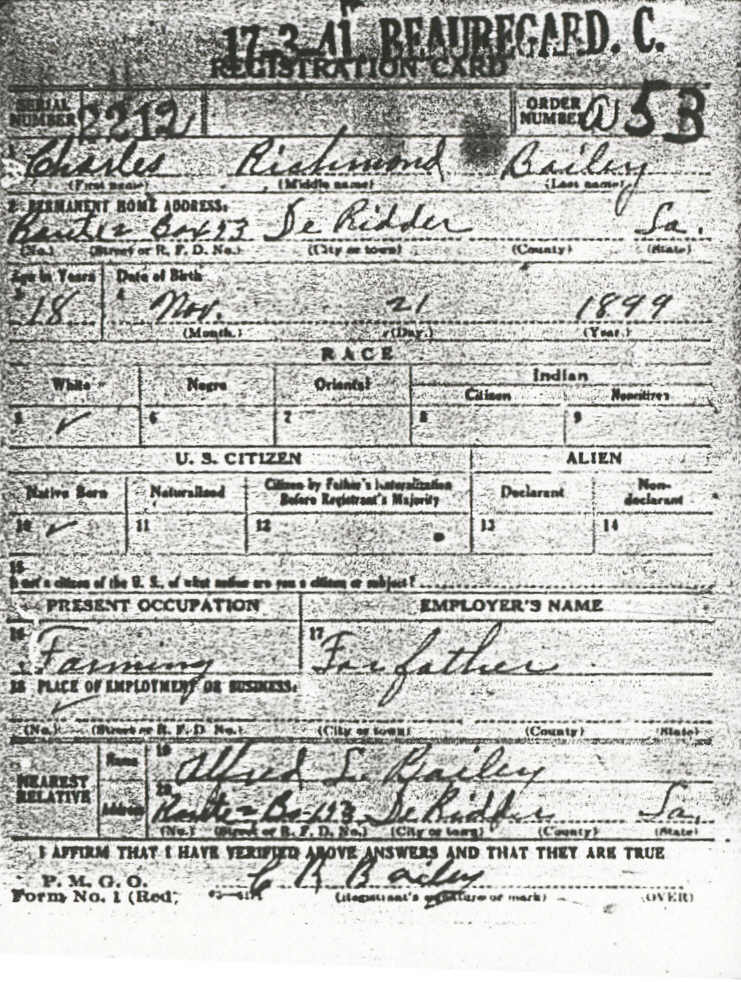 17-3-41 BEAUREGARD. C.
REGISTRATION CARD
SERIAL NUMBER 2212 ORDER NUMBER A 53
1 Charles Rishmond Bailey
(First name) (Middle name) (Last name)
2 PERMANENT HOME ADDRESS:
Route 2 Box 93 De Ridder La.
(No.) (Street or R. F. D. No.) (City or town) (County) (State)
Age in Years Date of Birth
3 18 4 Nov. 21 1899
(Month.) (Day.) (Year.)
RACE
White Negro Oriental Indian
Citizen Noncitizen
5 ✓ 6 7 8 9
U. S. CITIZEN ALIEN
Native Born Naturalized Citizen by Father's Naturalization Before Registrant's Majority Declarant Non-declarant
10 ✓ 11 12 13 14
15
If not a citizen of the U. S., of what nation are you a citizen or subject?
PRESENT OCCUPATION EMPLOYER'S NAME
16 Farming 17 For father
18 PLACE OF EMPLOYMENT OR BUSINESS:
(No.) (Street or R. F. D. No.) (City or town) (County) (State)
NEAREST RELATIVE Name 19 Alfred L. Bailey
Address 20 Route 2 Box 93 De Ridder La.
(No.) (Street or R. F. D. No.) (City or town) (County) (State)
I AFFIRM THAT I HAVE VERIFIED ABOVE ANSWERS AND THAT THEY ARE TRUE
P. M. G. O.
Form No. 1 (Red) C R Bailey
(Registrant's signature or mark) (OVER)